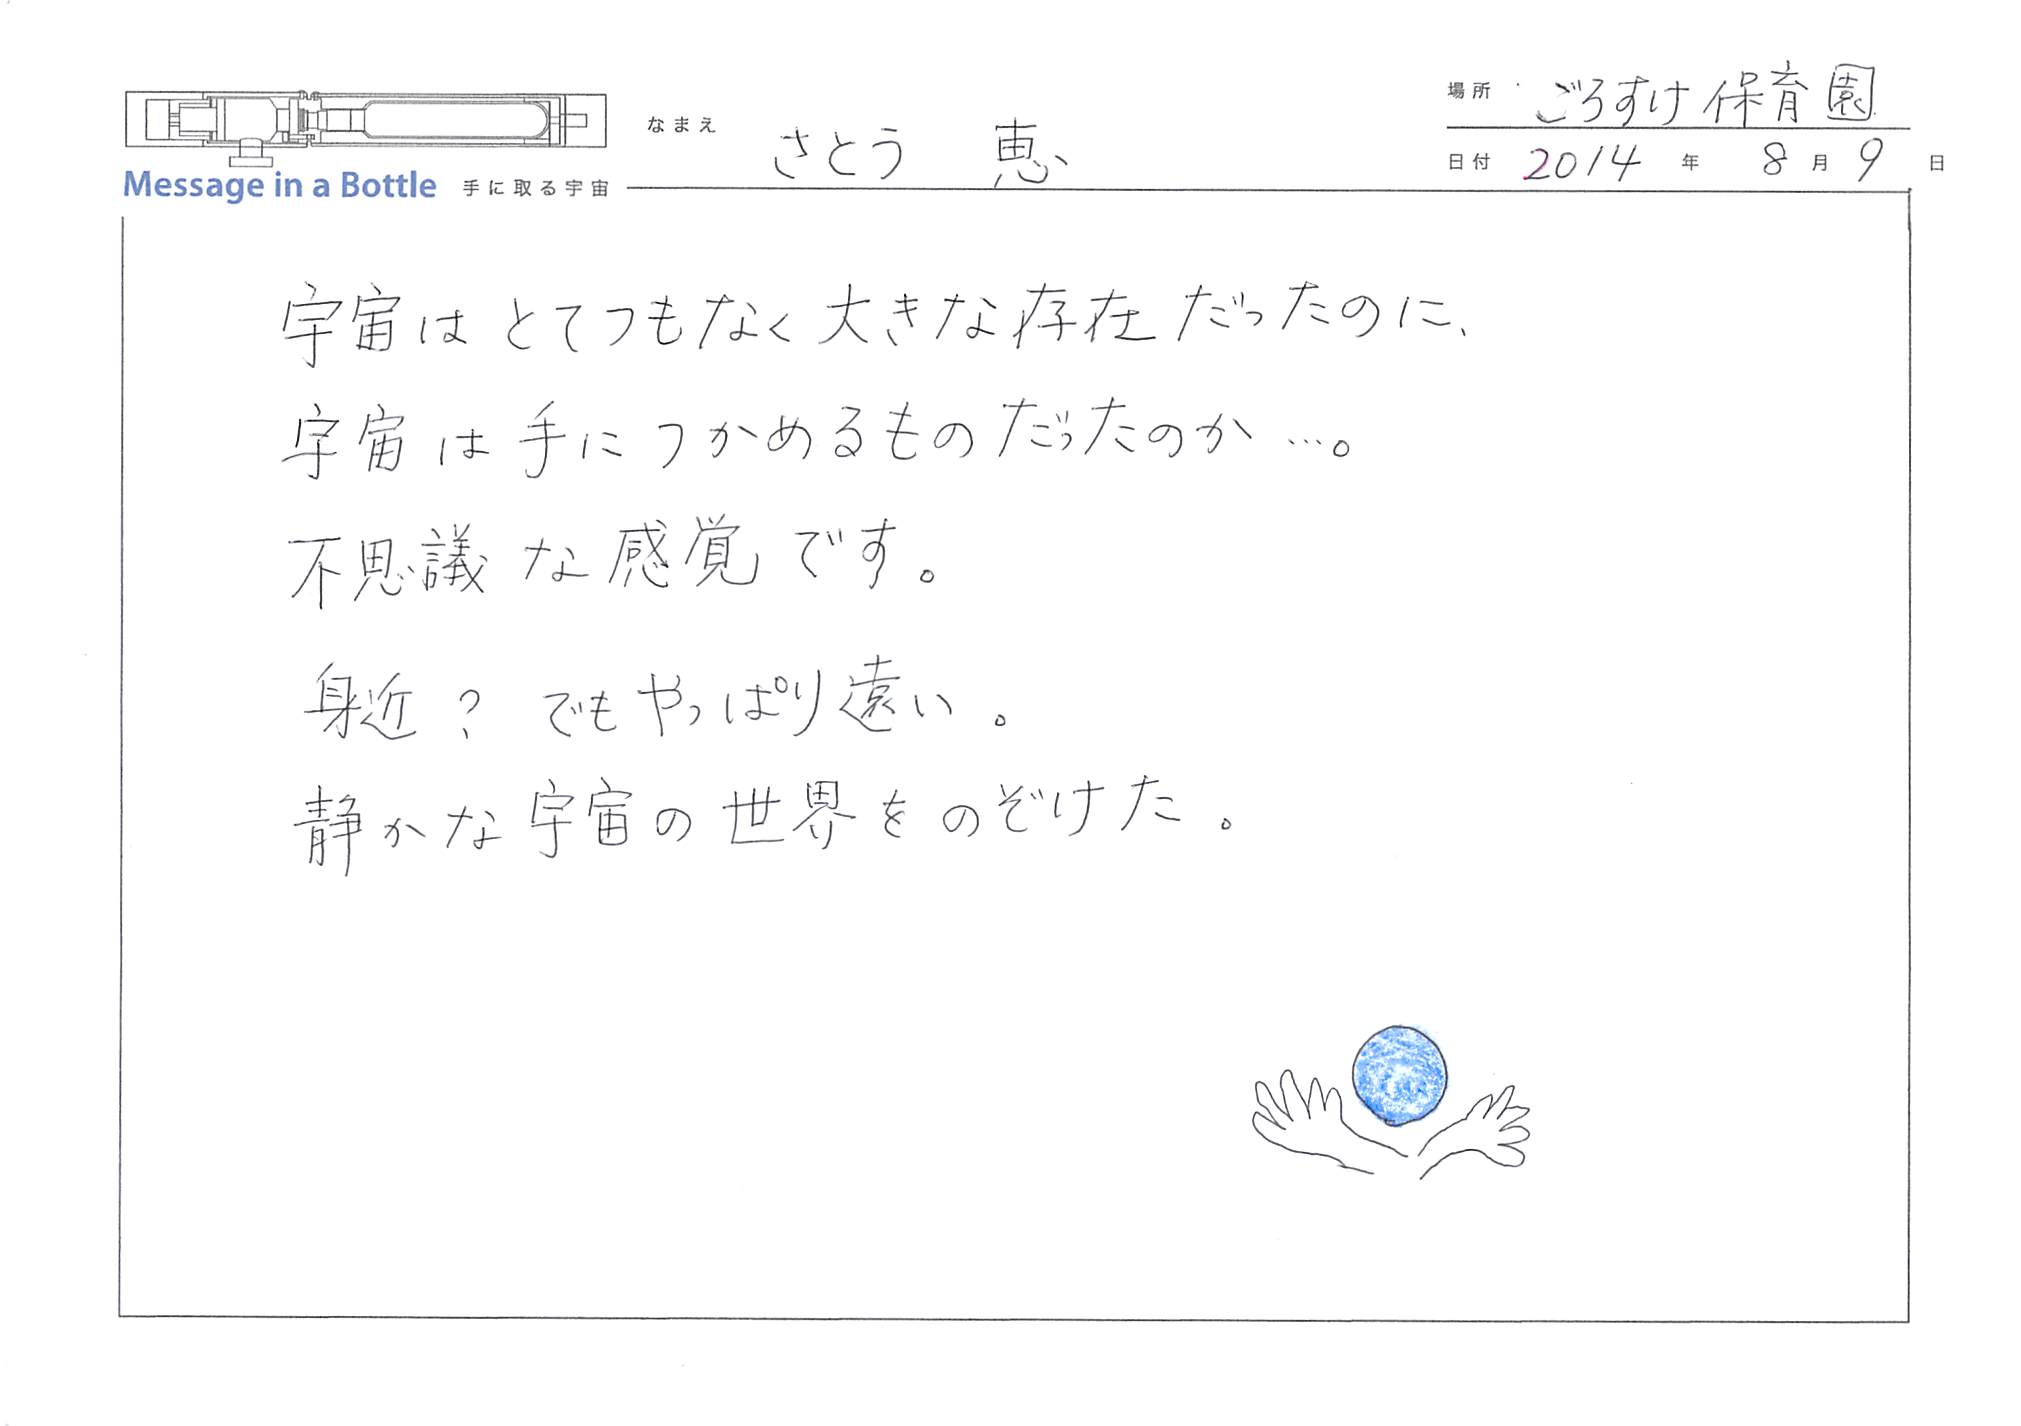 場所 ごろすけ保育園
なまえ さとう 恵
日付 2014 年 8 月 9 日
Message in a Bottle 手に取る宇宙
宇宙はとてつもなく大きな存在だったのに、
宇宙は手につかめるものだったのか…。
不思議な感覚です。
身近？でもやっぱり遠い。
静かな宇宙の世界をのぞけた。